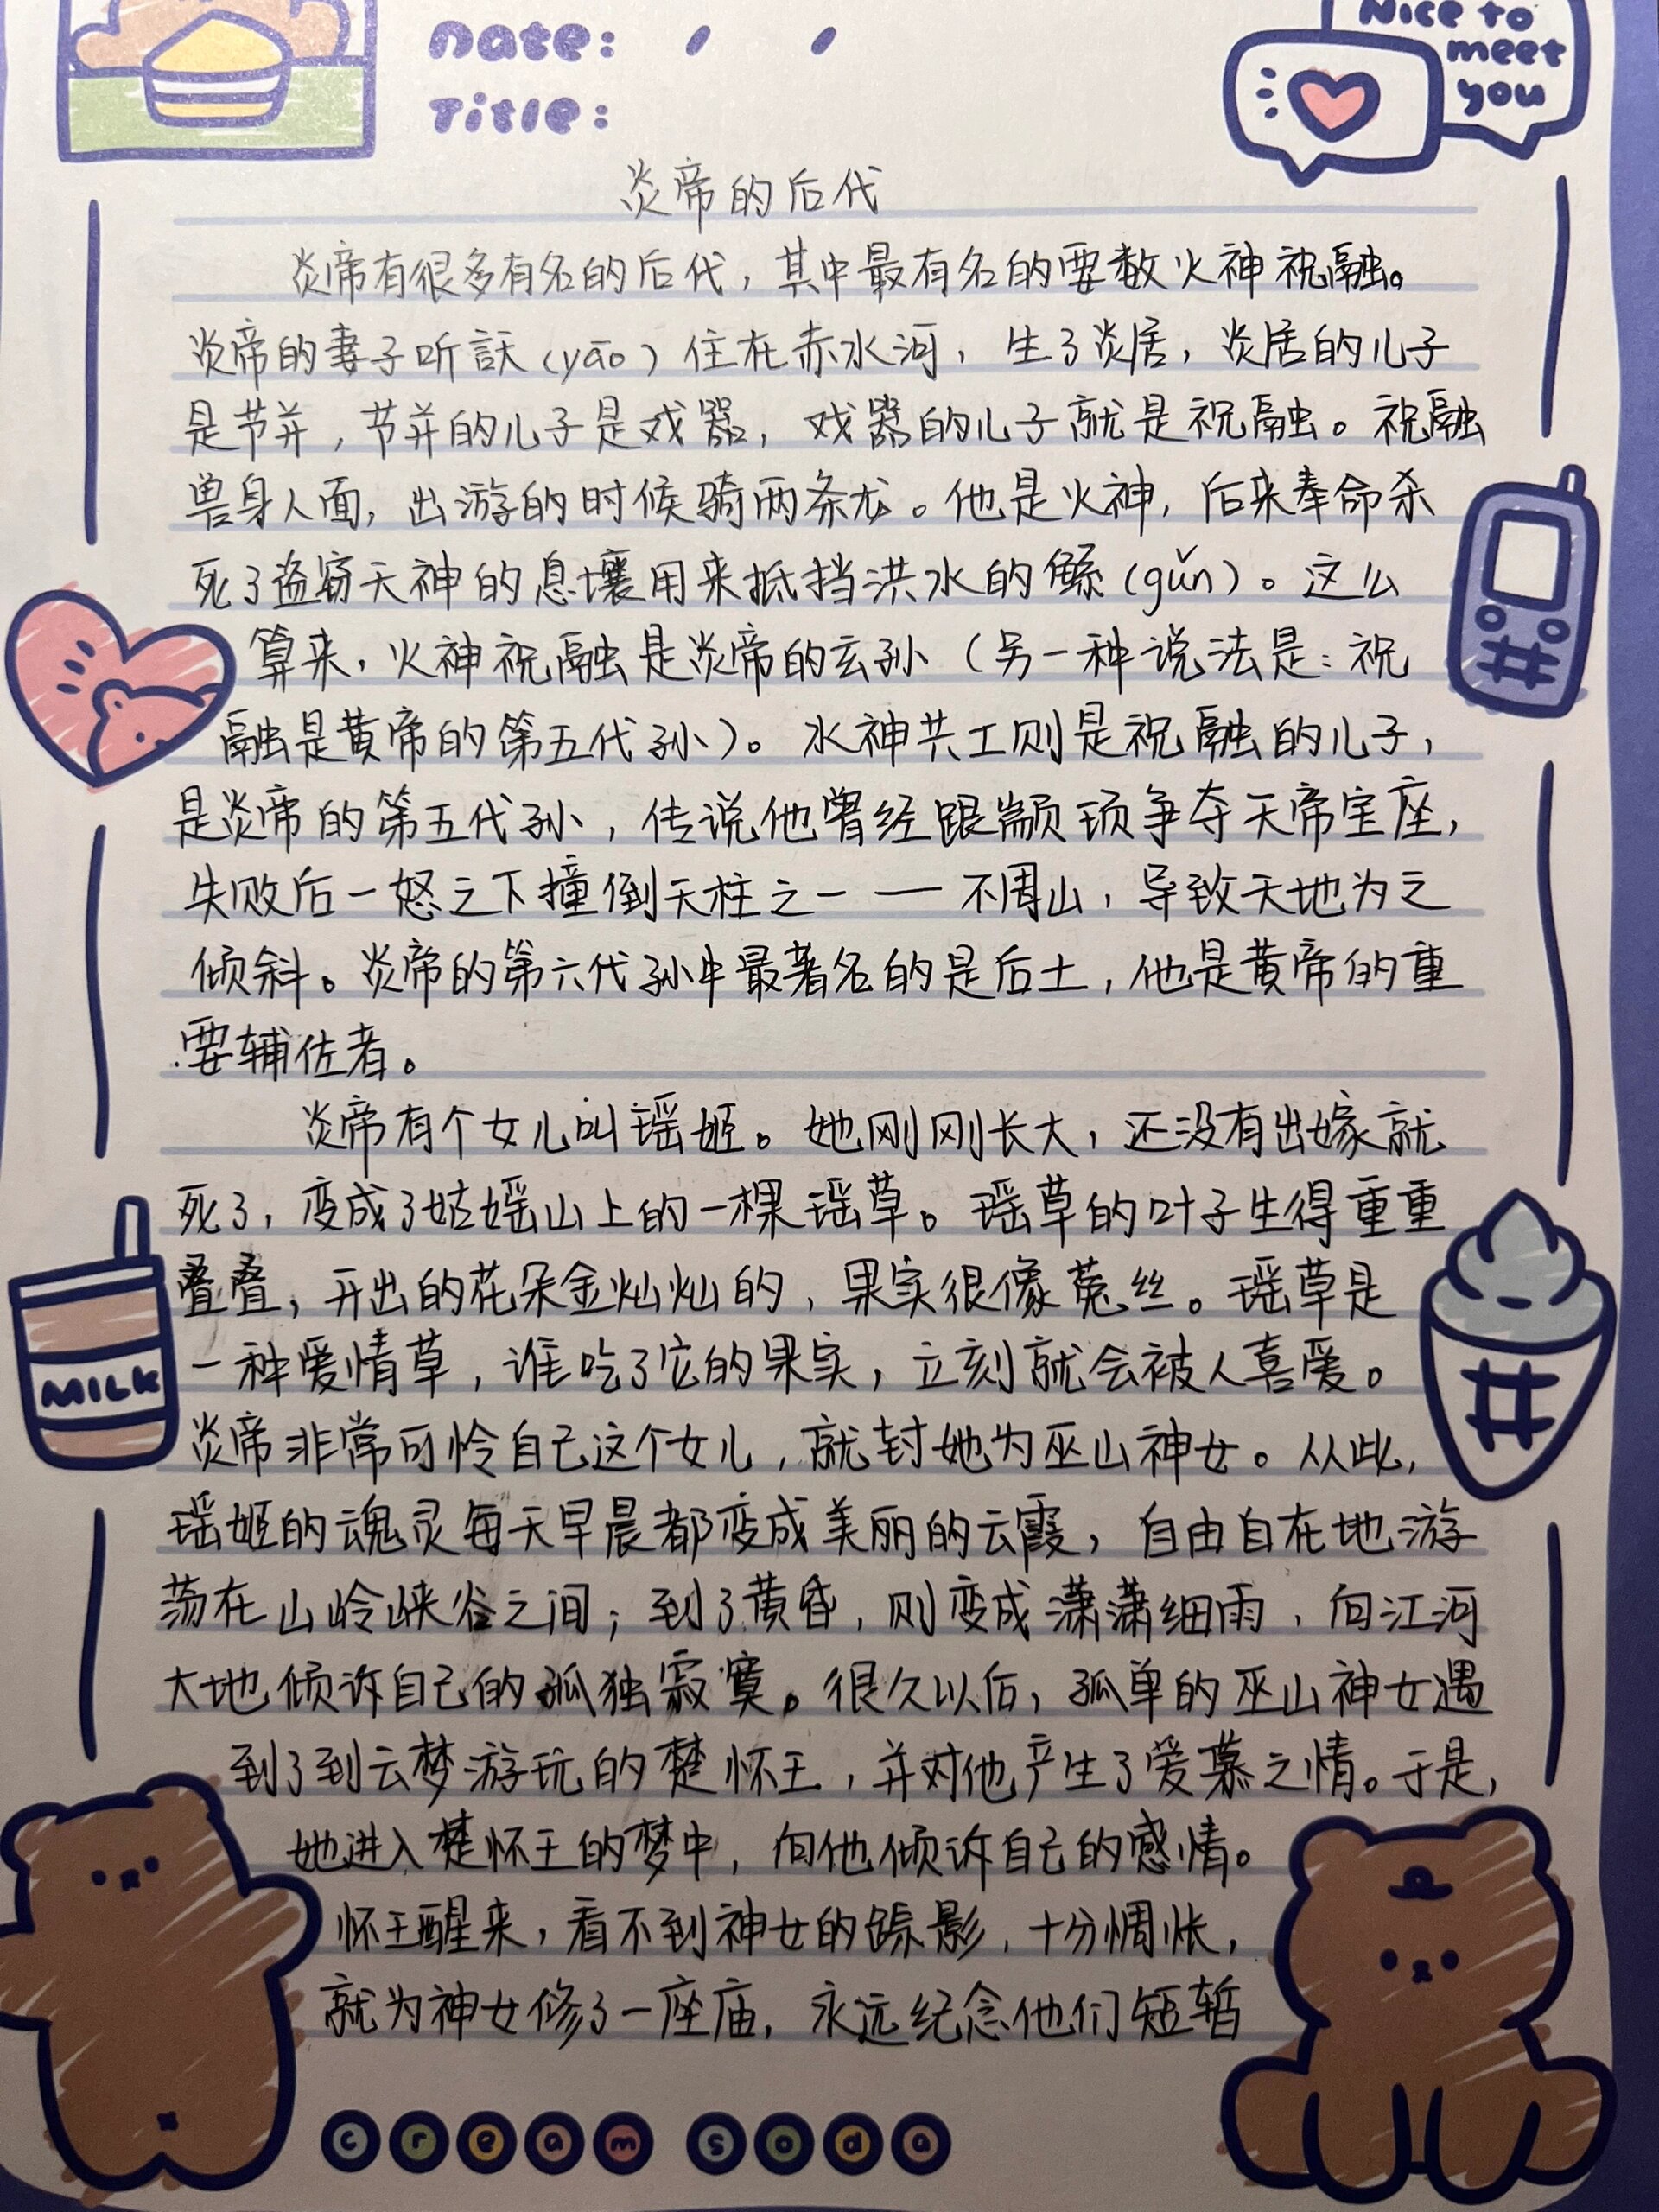 Date: / /
Title:
Nice to
meet
you
炎帝的后代
炎帝有很多有名的后代，其中最有名的要数火神祝融。
炎帝的妻子听訞（yāo）住在赤水河，生了炎居，炎居的儿子
是节并，节并的儿子是戏器，戏器的儿子就是祝融。祝融
兽身人面，出游的时候骑两条龙。他是火神，后来奉命杀
死了盗窃天神的息壤用来抵挡洪水的鲧（gǔn）。这么
算来，火神祝融是炎帝的玄孙（另一种说法是：祝
融是黄帝的第五代孙）。水神共工则是祝融的儿子，
是炎帝的第五代孙，传说他曾经跟颛顼争夺天帝宝座，
失败后一怒之下撞倒天柱之一——不周山，导致天地为之
倾斜。炎帝的第六代孙中最著名的是后土，他是黄帝的重
要辅佐者。
炎帝有个女儿叫瑶姬。她刚刚长大，还没有出嫁就
死了，变成了姑媱山上的一棵瑶草。瑶草的叶子生得重重
叠叠，开出的花朵金灿灿的，果实很像菟丝。瑶草是
一种爱情草，谁吃了它的果实，立刻就会被人喜爱。
炎帝非常可怜自己这个女儿，就封她为巫山神女。从此，
瑶姬的魂灵每天早晨都变成美丽的云霞，自由自在地游
荡在山岭峡谷之间；到了黄昏，则变成潇潇细雨，向江河
大地倾诉自己的孤独寂寞。很久以后，孤单的巫山神女遇
到了到云梦游玩的楚怀王，并对他产生了爱慕之情。于是，
她进入楚怀王的梦中，向他倾诉自己的感情。
怀王醒来，看不到神女的踪影，十分惆怅，
就为神女修了一座庙，永远纪念他们短暂
MILK
cream soda